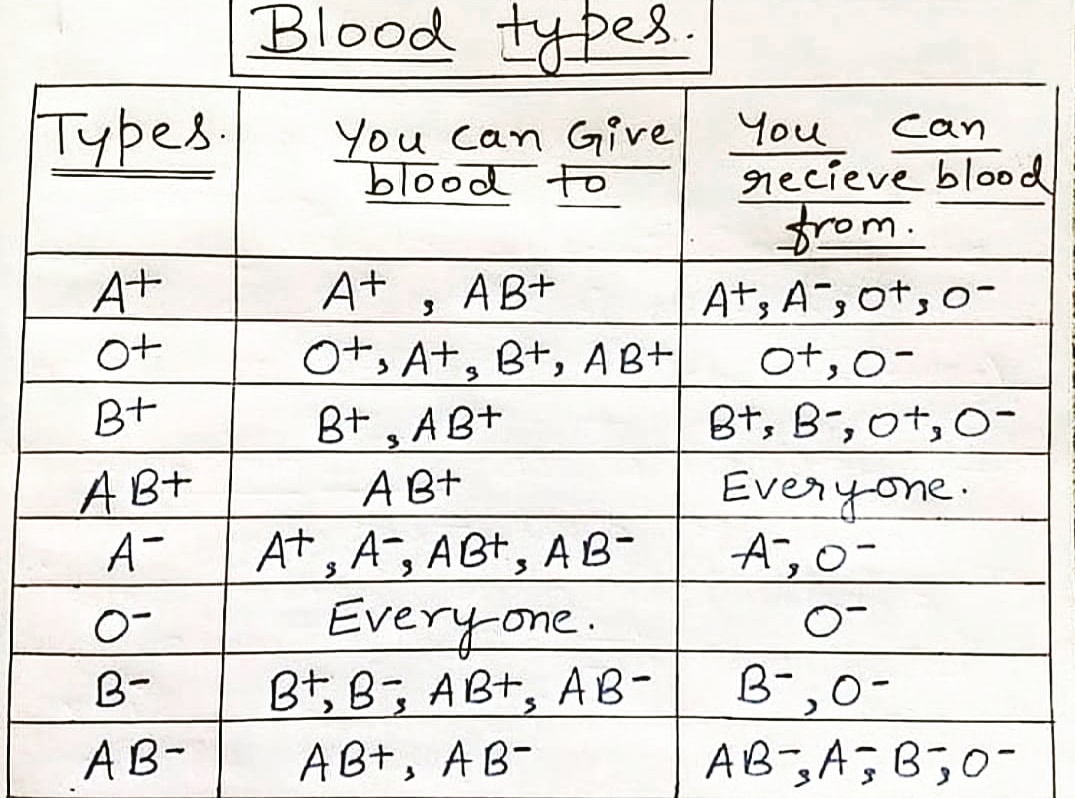 Blood types.
Types. You can Give You can
blood to recieve blood
from.
A+ A+, AB+ A+, A-, O+, O-
O+ O+, A+, B+, AB+ O+, O-
B+ B+, AB+ B+, B-, O+, O-
AB+ AB+ Everyone.
A- A+, A-, AB+, AB- A-, O-
O- Everyone. O-
B- B+, B-, AB+, AB- B-, O-
AB- AB+, AB- AB-, A-, B-, O-